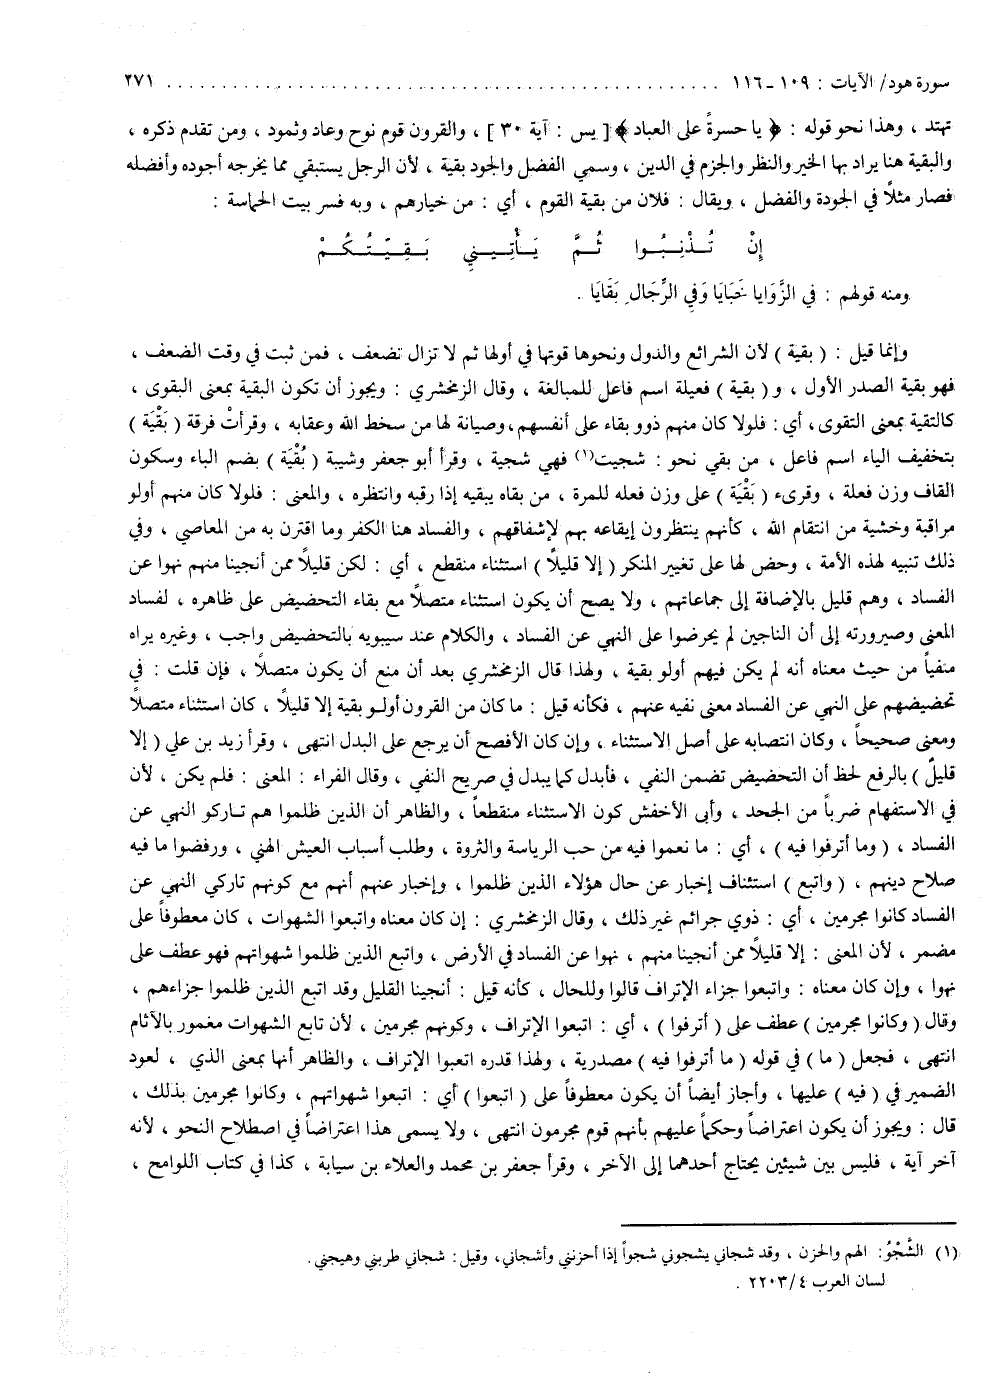 سورة هود/ الآيات : ١٠٩ ـ ١١٦ ........................................................ ٢٧١
تهتد ، وهذا نحو قوله : ﴿ يا حسرةً على العباد ﴾ [ يس : آية ٣٠ ] ، والقرون قوم نوح وعاد وثمود ، ومن تقدم ذكره ،
والبقية هنا يراد بها الخير والنظر والجزم في الدين ، وسمي الفضل والجود بقية ، لأن الرجل يستبقي مما يخرجه أجوده وأفضله
فصار مثلاً في الجودة والفضل ، ويقال : فلان من بقية القوم ، أي : من خيارهم ، وبه فسر بيت الحماسة :
إِنْ تُـذْنِبُـوا ثُـمَّ يَـأْتِـيـنِي بَـقِـيَّـتُـكُـمْ
ومنه قولهم : في الزَّوَايا خَبَايَا وَفي الرِّجَال بَقَايَا .
وإنما قيل : ( بقية ) لأن الشرائع والدول ونحوها قوتها في أولها ثم لا تزال تضعف ، فمن ثبت في وقت الضعف ،
فهو بقية الصدر الأول ، و ( بقية ) فعيلة اسم فاعل للمبالغة ، وقال الزمخشري : ويجوز أن تكون البقية بمعنى البقوى ،
كالتقية بمعنى التقوى ، أي : فلولا كان منهم ذوو بقاء على أنفسهم ، وصيانة لها من سخط الله وعقابه ، وقرأتْ فرقة ( بَقْيَة )
بتخفيف الياء اسم فاعل ، من بقي نحو : شجيت(١) فهي شجية ، وقرأ أبو جعفر وشيبة ( بُقْيَة ) بضم الباء وسكون
القاف وزن فعلة ، وقرىء ( بَقْيَة ) على وزن فعله للمرة ، من بقاه يبقيه إذا رقبه وانتظره ، والمعنى : فلولا كان منهم أولو
مراقبة وخشية من انتقام الله ، كأنهم ينتظرون إيقاعه بهم لإشفاقهم ، والفساد هنا الكفر وما اقترن به من المعاصي ، وفي
ذلك تنبيه لهذه الأمة ، وحض لها على تغيير المنكر ( إلا قليلاً ) استثناء منقطع ، أي : لكن قليلاً ممن أنجينا منهم نهوا عن
الفساد ، وهم قليل بالإضافة إلى جماعاتهم ، ولا يصح أن يكون استثناء متصلاً مع بقاء التحضيض على ظاهره ، لفساد
المعنى وصيرورته إلى أن الناجين لم يحرضوا على النهي عن الفساد ، والكلام عند سيبويه بالتحضيض واجب ، وغيره يراه
منفياً من حيث معناه أنه لم يكن فيهم أولو بقية ، ولهذا قال الزمخشري بعد أن منع أن يكون متصلاً ، فإن قلت : في
تحضيضهم على النهي عن الفساد معنى نفيه عنهم ، فكأنه قيل : ما كان من القرون أولـو بقية إلا قليلاً ، كان استثناء متصلاً
ومعنى صحيحاً ، وكان انتصابه على أصل الاستثناء ، وإن كان الأفصح أن يرجع على البدل انتهى ، وقرأ زيد بن علي ( إلا
قليلٌ ) بالرفع لحظ أن التحضيض تضمن النفي ، فأبدل كما يبدل في صريح النفي ، وقال الفراء : المعنى : فلم يكن ، لأن
في الاستفهام ضرباً من الجحد ، وأبى الأخفش كون الاستثناء منقطعاً ، والظاهر أن الذين ظلموا هم تـاركو النهي عن
الفساد ، ( وما أترفوا فيه ) ، أي : ما نعموا فيه من حب الرياسة والثروة ، وطلب أسباب العيش الهني ، ورفضوا ما فيه
صلاح دينهم ، ( واتبع ) استئناف إخبار عن حال هؤلاء الذين ظلموا ، وإخبار عنهم أنهم مع كونهم تاركي النهي عن
الفساد كانوا مجرمين ، أي : ذوي جرائم غير ذلك ، وقال الزمخشري : إن كان معناه واتبعوا الشهوات ، كان معطوفاً على
مضمر ، لأن المعنى : إلا قليلاً ممن أنجينا منهم ، نهوا عن الفساد في الأرض ، واتبع الذين ظلموا شهواتهم فهو عطف على
نهوا ، وإن كان معناه : واتبعوا جزاء الإتراف قالوا وللحال ، كأنه قيل : أنجينا القليل وقد اتبع الذين ظلموا جزاءهم ،
وقال ( وكانوا مجرمين ) عطف على ( أترفوا ) ، أي : اتبعوا الإتراف ، وكونهم مجرمين ، لأن تابع الشهوات مغمور بالآثام
انتهى ، فجعل ( ما ) في قوله ( ما أترفوا فيه ) مصدرية ، ولهذا قدره اتعبوا الإتراف ، والظاهر أنها بمعنى الذي ، لعود
الضمير في ( فيه ) عليها ، وأجاز أيضاً أن يكون معطوفاً على ( اتبعوا ) أي : اتبعوا شهواتهم ، وكانوا مجرمين بذلك ،
قال : ويجوز أن يكون اعتراضاً وحكماً عليهم بأنهم قوم مجرمون انتهى ، ولا يسمى هذا اعتراضاً في اصطلاح النحو ، لأنه
آخر آية ، فليس بين شيئين يحتاج أحدهما إلى الآخر ، وقرأ جعفر بن محمد والعلاء بن سيابة ، كذا في كتاب اللوامح ،
(١) الشَّجْوُ : الهم والحزن ، وقد شجاني يشجوني شجواً إذا أحزنني وأشجاني ، وقيل : شجاني طربني وهيجني .
لسان العرب ٤/ ٢٢٠٣ .